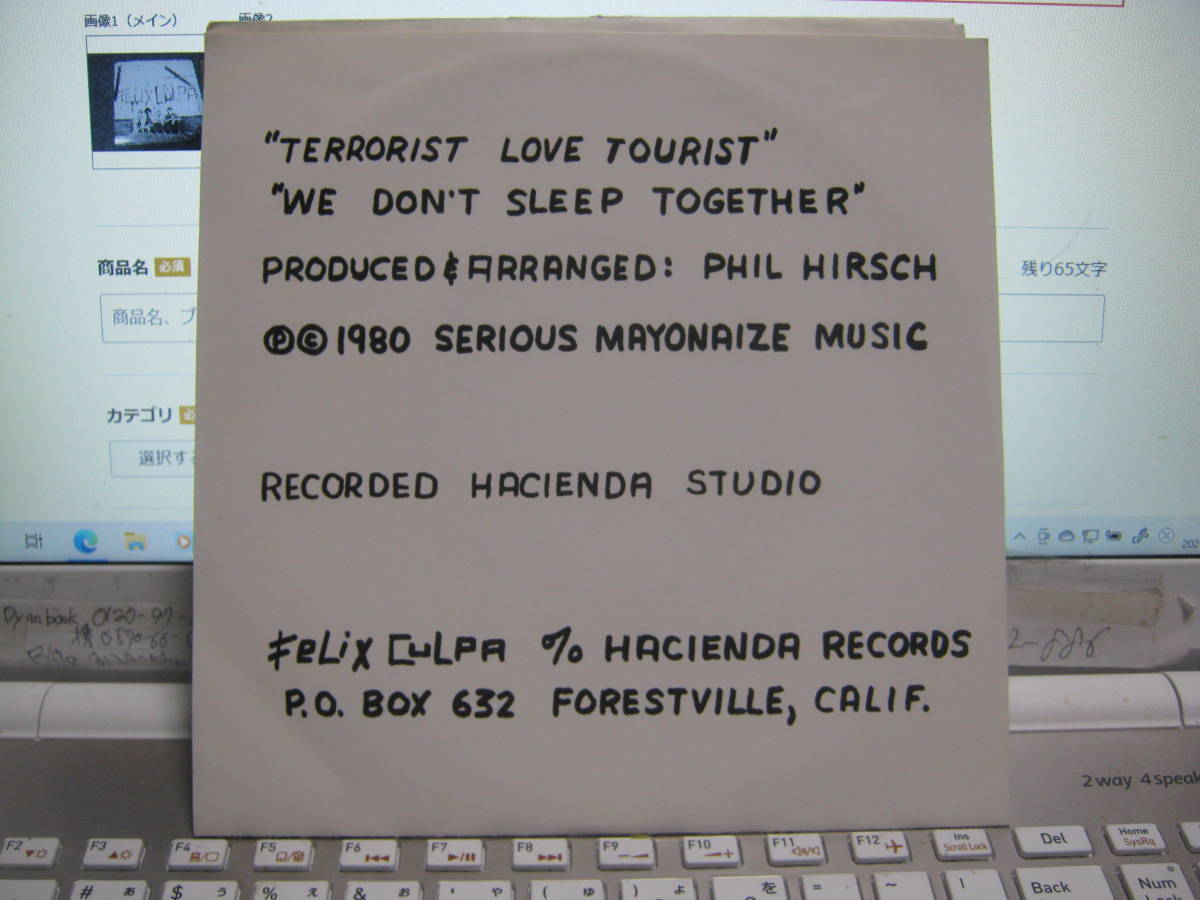 画像1（メイン）
画像2
FELIX CULPA
"TERRORIST LOVE TOURIST"
"WE DON'T SLEEP TOGETHER"
商品名 必須
残り65文字
PRODUCED & ARRANGED: PHIL HIRSCH
商品名、ブ
Ⓟ©1980 SERIOUS MAYONAIZE MUSIC
カテゴリ 必
選択す
RECORDED HACIENDA STUDIO
202
Dynabook 0120-97-
0570-66-
FELIX CULPA % HACIENDA RECORDS
P.O. BOX 632 FORESTVILLE, CALIF.
2way 4speak
F2 F3 F4 F5 F6 F7 F8 F9 F10 F11 F12 Ins Scroll Lock Del Home SysRq
# あ $ う % え & お ' や ( ゆ ) よ を = ~ | Back Num Lock